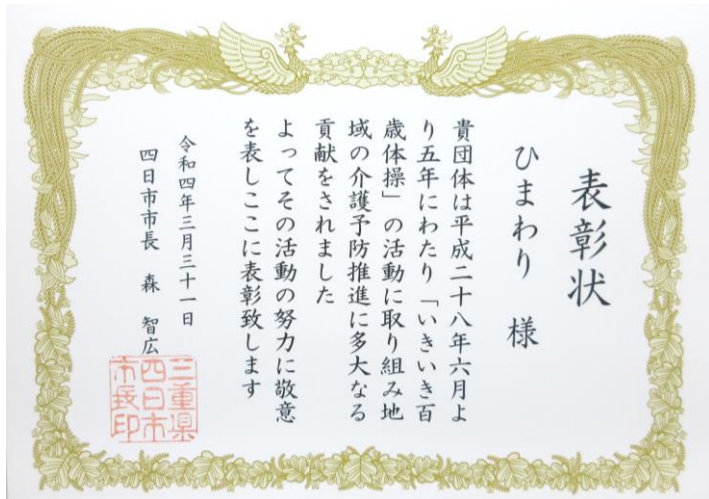 表彰状
ひまわり 様
貴団体は平成二十八年六月よ
り五年にわたり「いきいき百
歳体操」の活動に取り組み地
域の介護予防推進に多大なる
貢献をされました
よってその活動の努力に敬意
を表しここに表彰致します
令和四年三月三十一日
四日市市長 森 智広
三重県
四日市
市長印